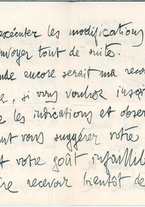 exécuter les modifications
envoyer tout de suite.
encore serait ma reco
, si vous vouliez inscri
les indications et obser
vous suggérer votre
et votre goût infaillib
recevoir bientôt de